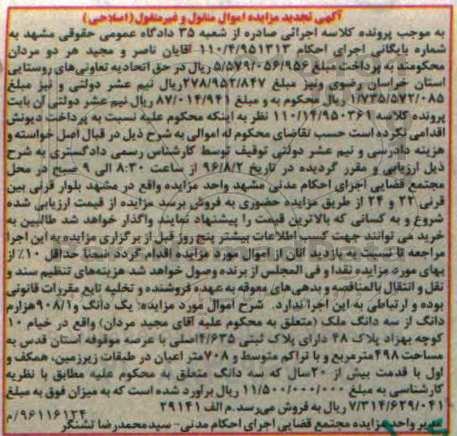 آگهی تجدید مزایده اموال منقول و غیرمنقول (اصلاحی)
به موجب پرونده کلاسه اجرائی صادره از شعبه ۳۵ دادگاه عمومی حقوقی مشهد به
شماره بایگانی اجرای احکام ۱۱۰/۴/۹۵۱۳۱۳ آقایان ناصر و مجید هر دو مردان
محکومند به پرداخت مبلغ ۵/۵۷۹/۰۵۶/۹۵۶ ریال در حق اتحادیه تعاونی‌های روستایی
استان خراسان رضوی ونیز مبلغ ۲۷۸/۹۵۲/۸۴۷ریال نیم عشر دولتی و نیز مبلغ
۱/۷۳۵/۵۷۲/۰۸۵ ریال محکوم به و مبلغ ۸۷/۰۱۴/۹۴۱ ریال نیم عشر دولتی آن بابت
پرونده کلاسه ۱۱۰/۱۴/۹۵۰۳۶۱ نظر به اینکه محکوم علیه نسبت به پرداخت دیونش
اقدامی نکرده است حسب تقاضای محکوم له اموالی به شرح ذیل در قبال اصل خواسته و
هزینه دادرسی و نیم عشر دولتی توقیف توسط کارشناس رسمی دادگستری به شرح
ذیل ارزیابی و مقرر گردیده در تاریخ ۹۶/۸/۲ از ساعت ۸:۳۰ الی ۹ صبح در محل
مجتمع قضایی اجرای احکام مدنی مشهد واحد مزایده واقع در مشهد بلوار قرنی بین
قرنی ۲۲ و ۲۴ از طریق مزایده حضوری به فروش برسد مزایده از قیمت ارزیابی شده
شروع و به کسانی که بالاترین قیمت را پیشنهاد نمایند واگذار خواهد شد طالبین به
خرید می توانند جهت کسب اطلاعات بیشتر پنج روز قبل از برگزاری مزایده به این اجرا
مراجعه تا نسبت به بازدید آنان از اموال مورد مزایده اقدام گردد ضمنا حداقل ۱۰٪ از
بهای مورد مزایده نقدا و فی المجلس از برنده وصول خواهد شد هزینه‌های تنظیم سند و
نقل و انتقال بالمناصفه و بدهی‌های معوقه به عهده فروشنده و تخلیه تابع مقررات قانونی
بوده و ارتباطی به این اجرا ندارد. شرح اموال مورد مزایده: یک دانگ و۹۰۸/۱هزارم
دانگ از سه دانگ ملک (متعلق به محکوم علیه آقای مجید مردان) واقع در خیام ۱۰
کوچه بهزاد پلاک ۴۸ دارای پلاک ثبتی ۴/۶۳۵اصلی با عرصه موقوفه آستان قدس به
مساحت ۴۹۸مترمربع و با تراکم متوسط و ۷۰۸متر اعیان در طبقات زیرزمین، همکف و
اول با قدمت بیش از ۲۰سال که سه دانگ متعلق به محکوم علیه مطابق با نظریه
کارشناسی به مبلغ ۱۱/۵۰۰/۰۰۰/۰۰۰ ریال برآورد شده است که به میزان فوق به مبلغ
۷/۳۱۴/۶۲۹/۰۴۱ ریال به فروش می‌رسد.م الف ۲۹۱۴۱
مدیر واحد مزایده مجتمع قضایی اجرای احکام مدنی- سیدمحمدرضا تشنگر ۹۶۱۱۶۱۲۴/م